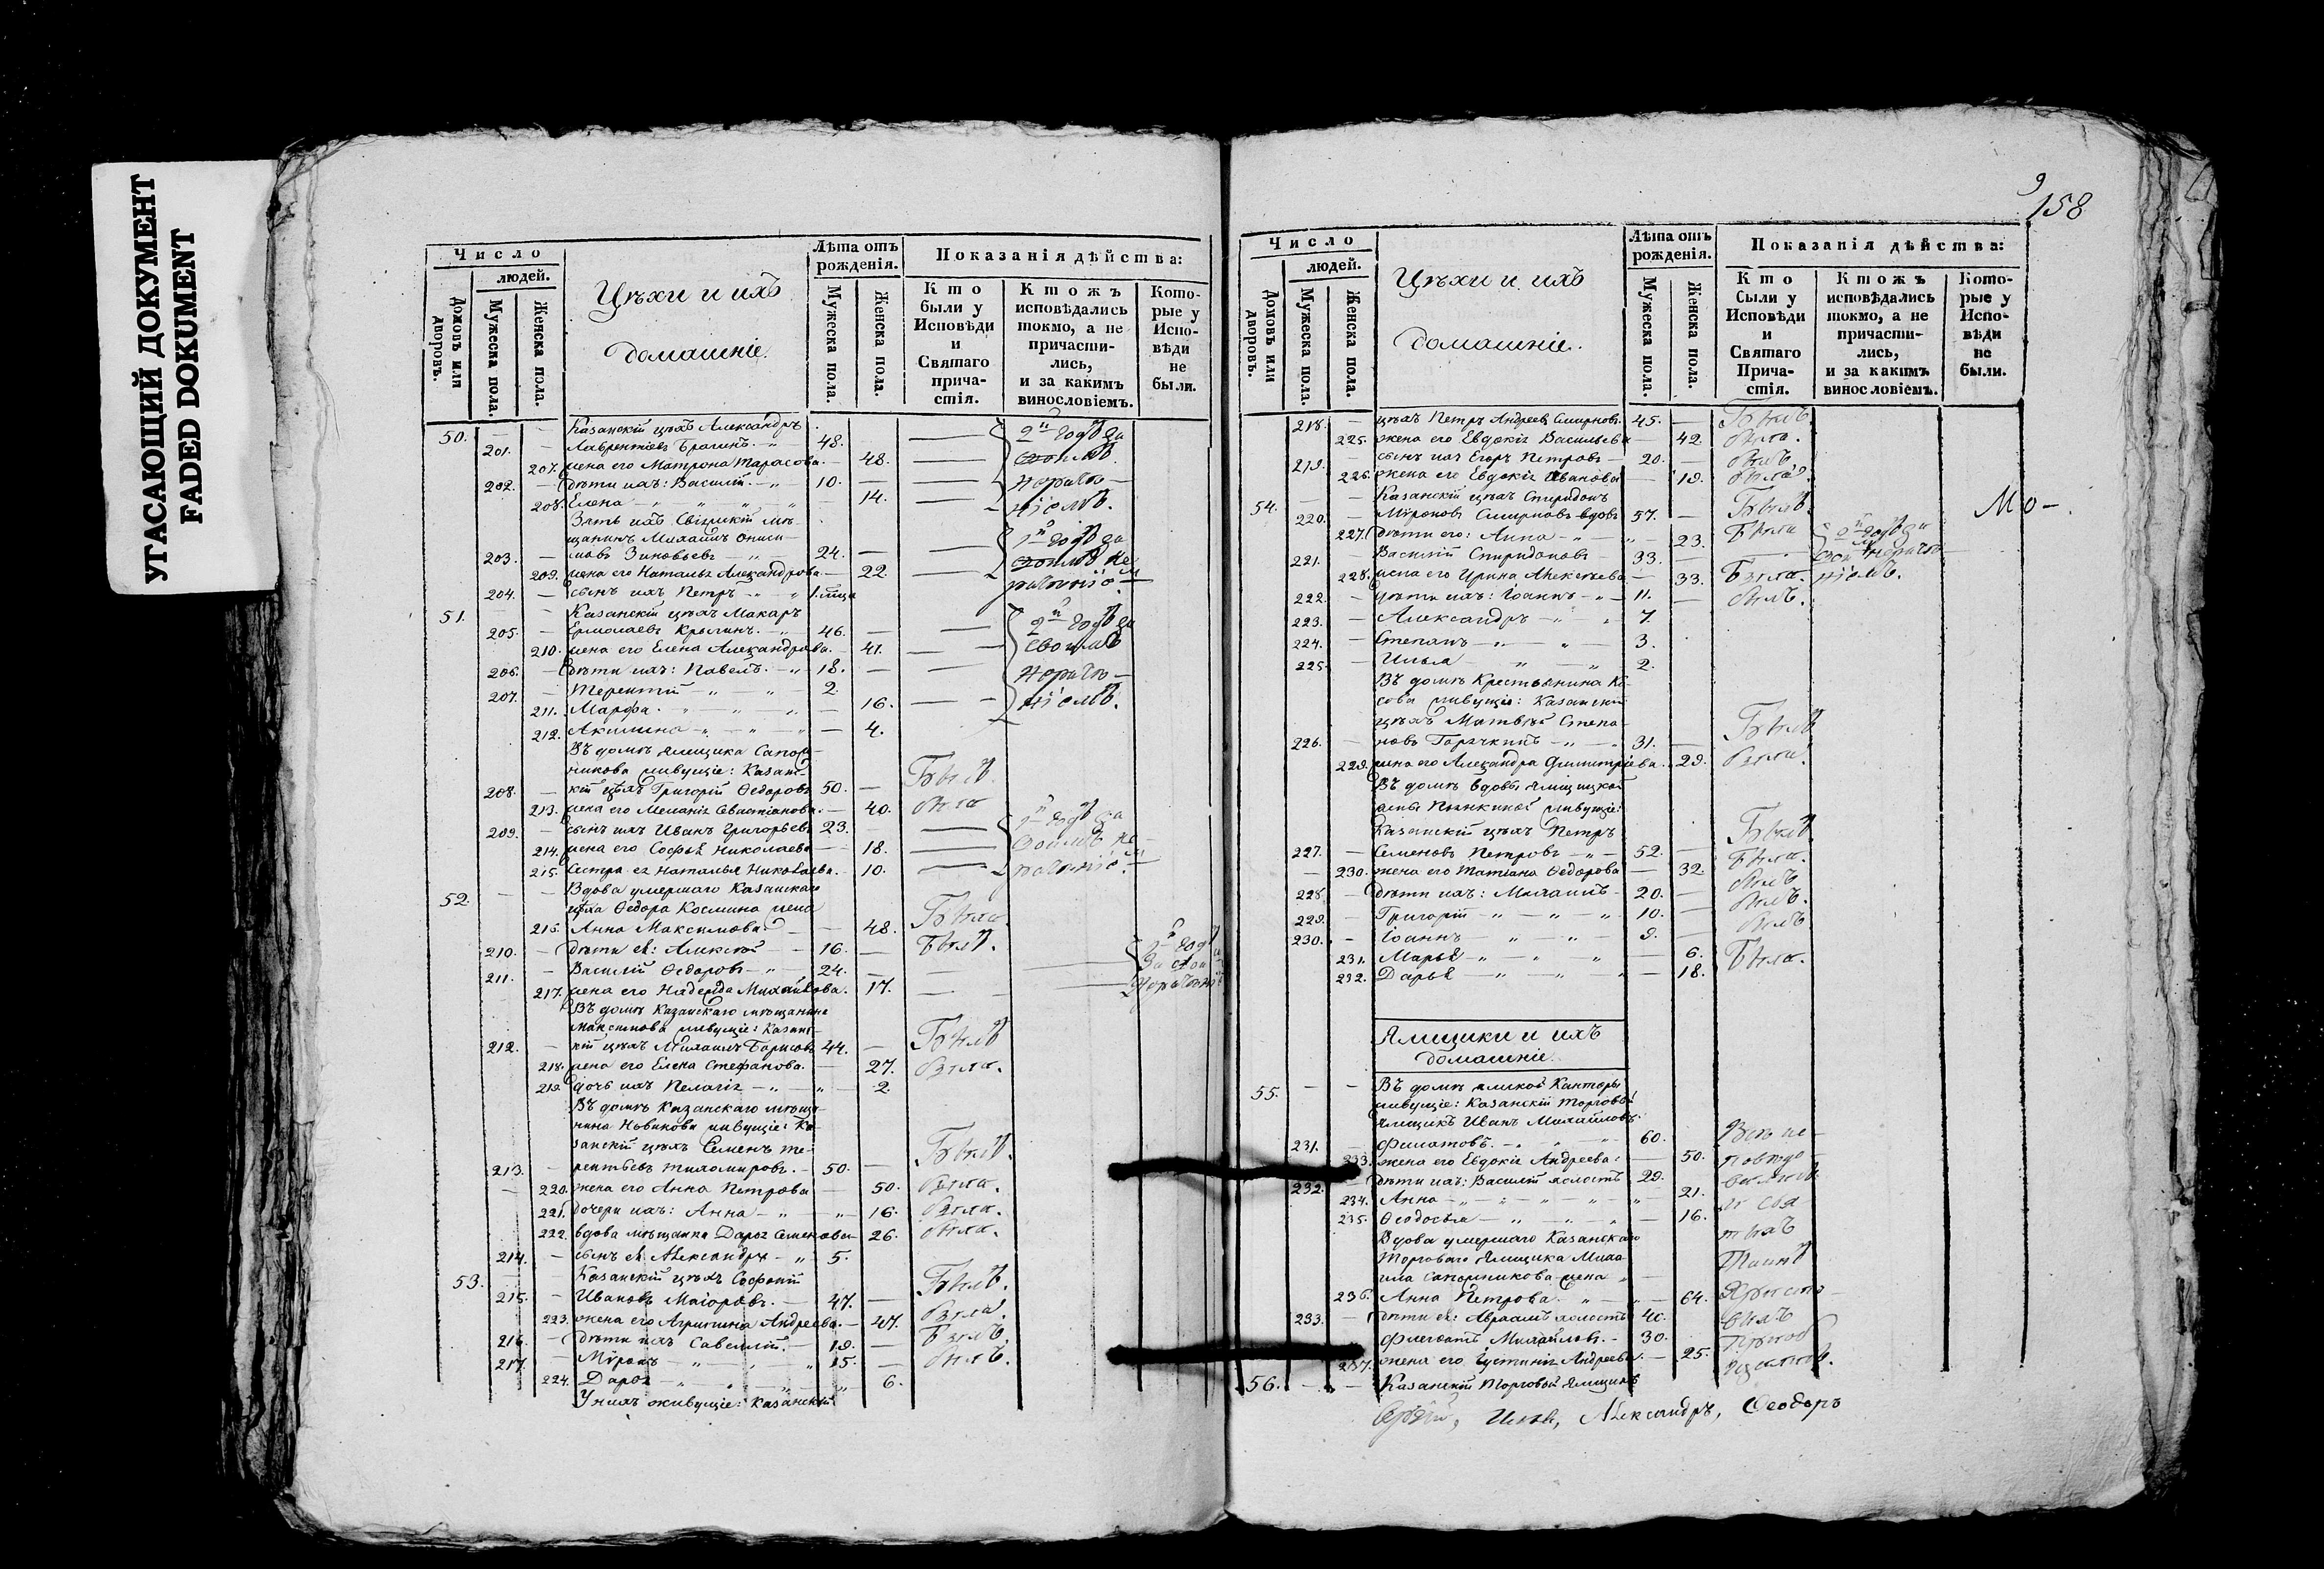 УГАСАЮЩИЙ ДОКУМЕНТ
FADED DOKUMENT
Число
людей.
Домовъ или дворовъ.
Мужеска пола.
Женска пола.
Цѣхи и ихъ
домашніе.
Лѣта отъ рожденія.
Мужеска пола.
Женска пола.
Показанія дѣйства:
Кто были у Исповѣди и Святаго прича-стія.
Ктожъ исповѣдались токмо, а не причасти-лись, и за какимъ винословіемъ.
Кото-рые у Испо-вѣди не были.
50. — — Казанскій цѣхъ Александръ
201. — Лаврентіевъ 48. — 2й годъ за
207. жена его Матрона Тарасова. — 48.
202. — дѣти ихъ: Василій. 10. — нераче-
208. Елена 14. — ніемъ.
Зять ихъ Свіяжскій мѣ-
щанинъ Михаилъ Ониси-
203. — мовъ Зиновьевъ 24. — 1й годъ за
209. жена его Наталья Александрова. — 22.
204. — сынъ ихъ Петръ
51. — — Казанскій цѣхъ Макаръ
205. — Ермолаевъ Крылинъ. 46. — 2й годъ за
210. жена его Елена Александрова. — 41. своимъ
206. — дѣти ихъ: Павелъ. 18. — нераче-
207. — Терентій 2.
211. Марфа. — 16. ніемъ.
212. Акилина — 4.
Въ домѣ ямщика Сапож-
никова живущіе: Казанс-
208. — кій цѣхъ Григорій Ѳедоровъ 50. — Былъ.
213. жена его Меланія Севастіанова. — 40. Была
209. — сынъ ихъ Иванъ Григорьевъ 23. — 1й годъ за
214. жена его Софья Николаева — 18. своимъ не-
215. Сестра ея Наталья Николаева. — 10.
52. — — Вдова умершаго Казанскаго
цѣха Ѳедора Космина жена
216. Анна Максимова. — 48. Была.
210. — дѣти ея: Алексѣй 16. — Былъ.
211. — Василій Ѳедоровъ 24. — 1й годъ
217. жена его Надежда Михайлова. 17.
Въ домѣ Казанскаго мѣщанина
Максимова живущіе: Казанс-
212. — кій цѣхъ Михаилъ Борисовъ 44. — Былъ
218. жена его Елена Стефанова. — 27. Была.
219. дочь ихъ Пелагія — 2.
Въ домѣ Казанскаго мѣща-
нина Новикова живущіе: Ка-
занскій цѣхъ Семенъ Те-
213. — рентьевъ Тихомировъ. 50. — Былъ.
220. жена его Анна Петрова — 50. Была.
221. дочери ихъ: Анна 16. Была.
222. вдова мѣщанка Дарья Семенова 26. Была.
214. — сынъ ея Александръ 5.
53. — — Казанскій цѣхъ Софоній
215. — Ивановъ Маіоровъ. 47. — Былъ.
223. жена его Агрипина Андреева. — 47. Была.
216. — дѣти ихъ Савелій. 19. — Былъ.
217. — Миронъ 15. — Былъ.
224. Дарья 6.
У нихъ живущіе: Казанскій
158
Число
людей.
Домовъ или дворовъ.
Мужеска пола.
Женска пола.
Цѣхи и ихъ
домашніе.
Лѣта отъ рожденія.
Мужеска пола.
Женска пола.
Показанія дѣйства:
Кто были у Исповѣди и Святаго Прича-стія.
Ктожъ исповѣдались токмо, а не причасти-лись, и за какимъ винословіемъ.
Кото-рые у Испо-вѣди не были.
218. — цѣхъ Петръ Андреевъ Смирновъ. 45. — Былъ.
225. жена его Евдокія Васильева — 42. Была.
219. — сынъ ихъ Егоръ Петровъ 20. — Былъ
226. жена его Евдокія Иванова — 19. Была.
54. — — Казанскій цѣхъ Спиридонъ
220. — Мироновъ Смирновъ вдовъ 57. — Былъ.
Мо-
227. дѣти его: Анна 23. Была
221. — Василій Спиридоновъ 33. 2й годъ за
228. жена его Ирина Алексѣева — 33. Была. ніемъ.
222. — дѣти ихъ: Іоаннъ 11. — Былъ.
223. — Александръ 7.
224. — Степанъ 3.
225. — Илья 2.
Въ домѣ Крестьянина Ко-
сова живущіе: Казанскій
цѣхъ Матвѣй Степа-
226. — новъ 31. — Былъ
229. жена его Александра Димитріева. 29. Была.
Въ домѣ вдовы Ямщицкой
жены живущіе:
Казанскій цѣхъ Петръ
227. — Семеновъ Петровъ 52. — Былъ
230. жена его Татіана Ѳедорова — 32. Была.
228. — дѣти ихъ: Михаилъ 20. — Былъ
229. — Григорій 10. — Былъ.
230. — Іоаннъ 9. — Былъ
231. Марья — 6.
232. Дарья — 18. Была.
Ямщики и ихъ
домашніе.
55. — — Въ домѣ ямской Канторы
живущіе: Казанскій торговый
ямщикъ Иванъ Михайловъ
231. — Филатовъ. 60. Всѣ ис-
233. жена его Евдокія Андреева. — 50. повѣдо-
232. — дѣти ихъ: Василій холостъ 29. вались
234. Анна 21. и Свя
235. Ѳеодосья — 16. тыхъ
Вдова умершаго Казанскаго
торговаго Ямщика Миха- Таинъ
ила Сапожникова жена
236. Анна Петрова. 64. Христо-
233. — дѣти ея: Авраамъ холостъ 40. выхъ
Флегонтъ Михайловъ. 30. Пріоб
237. жена его Іустинія Андреева. — 25. щились.
56. — — Казанскій Торговый Ямщикъ
Сергій, Илья, Александръ, Ѳеодоръ